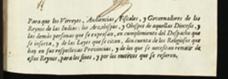 Para que los Virreyes, Audiencias, Fiscales, y Governadores de los
Reynos de las Indias: los Arzobispos, y Obispos de aquellas Diocesis, y
los demás personas que se expressan, en cumplimiento del Despacho que
se inserta, y de las Leyes que se citan, dèn cuenta de los Religiosos que
hay en sus respectivas Provincias, y de los que se necessitan remitir de
estos Reynos, para los fines, y por los motivos que se refieren.